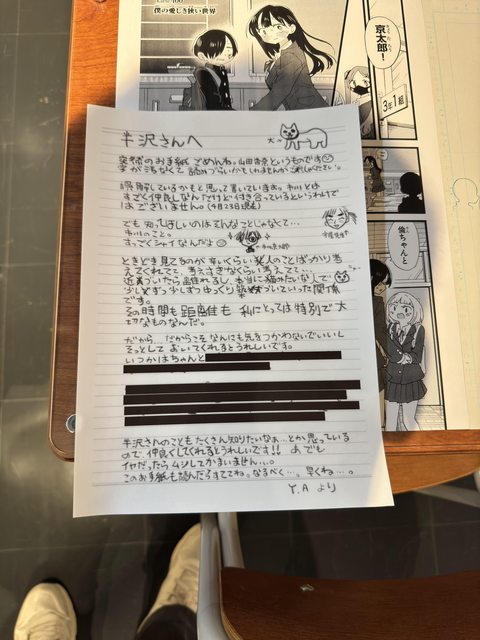 僕の愛しき狭い世界
京太郎！
3年1組
倫ちゃんと
半沢さんへ
犬→
突然のお手紙ごめんね。山田杏奈というものです
字がきたなくて読みづらいかもしれませんが
誤解しているかもと思って書いています。市川とは
すごく仲良しなんだけど付き合っているというわけで
はございません。(4月23日現在)
でも知ってほしいのはそんなことじゃなくて…
市川のこと。
すっごくシャイなんだよ
←市川京太郎
ときどき見てるのが辛いくらい他人のことばっかり考
えてくれてて、考えすぎなくらい考えてて…
近づいたら離れるし、本当に猫みたいな人で
少しずつ少しずつゆっくり築いていった関係
です。
その時間も距離も私にとっては特別で大
切なものなんだ。
だから、だからこそなんにも気をつかわないでいいし
そっとしておいてくれるとうれしいです。
いつかはちゃんと
半沢さんのこともたくさん知りたいなぁ…とか思っている
ので、仲良くしてくれるとうれしいです!! あでも
イヤだったらムシしてかまいません…。
このお手紙も読んだらすててね。なるべく…。早くね…。
Y.Aより